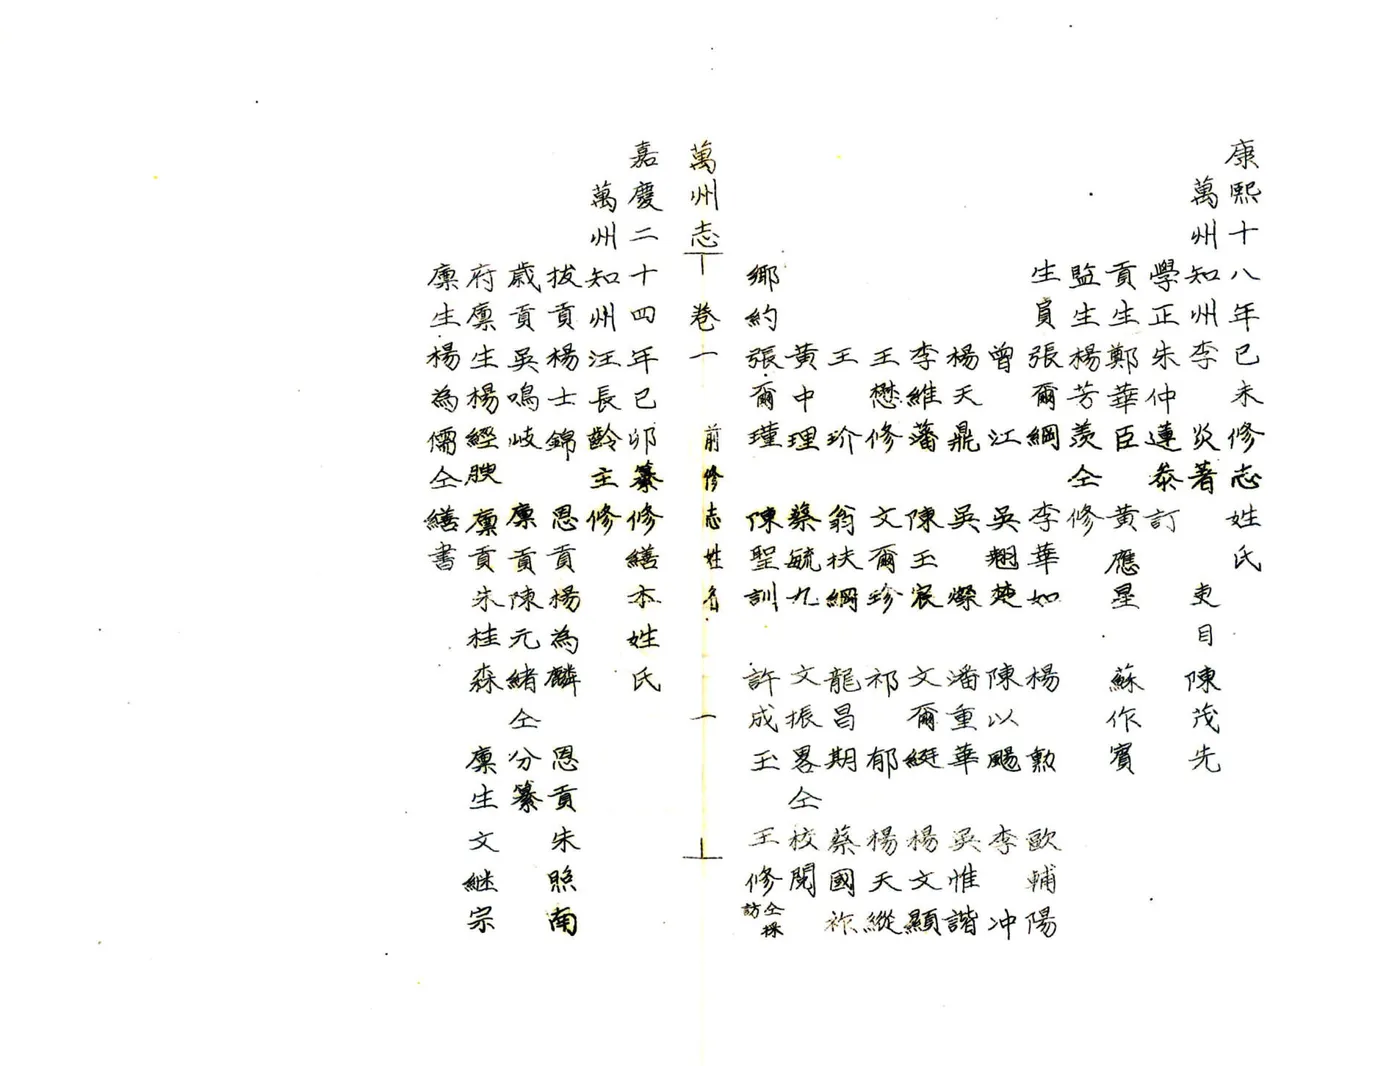 康熙十八年已未修志姓氏
萬州知州李　炎著　吏目陳茂先
學正朱仲蓮叅訂
貢生鄭華臣　黃應星　蘇作賓
監生楊芳羨仝修
生員張爾綱　李華如　楊　勲　歐輔陽
曾　江　吳翹楚　陳以颺　李　冲
楊天鼎　吳　燦　潘重華　吳惟諧
李維藩　陳玉宸　文爾綎　楊文顯
王懋修　文爾珍　祁　郁　楊天縱
王　玠　翁扶綱　龍昌期　蔡國祚
黃中理　蔡毓九　文振畧仝校閱
鄉約張爾瑾　陳聖訓　許成玉　王修仝採訪
萬州志　卷一　前修志姓名　一
嘉慶二十四年已卯纂修繕本姓氏
萬州知州汪長齡主修
拔貢楊士錦　恩貢楊為麟　恩貢朱照南
歲貢吳鳴岐　廩貢陳元緒仝分纂
府廩生楊經腴　廩貢朱桂森　廩生文継宗
廩生楊為儒仝繕書